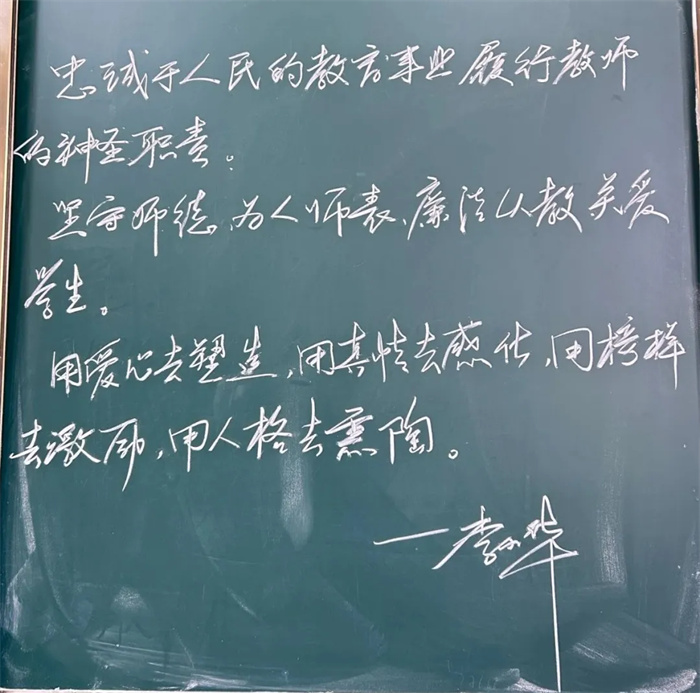 忠诚于人民的教育事业履行教师
的神圣职责。
坚守师德、为人师表、廉洁从教关爱
学生。
用爱心去塑造,用真情去感化,用榜样
去激励,用人格去熏陶。
—李小华